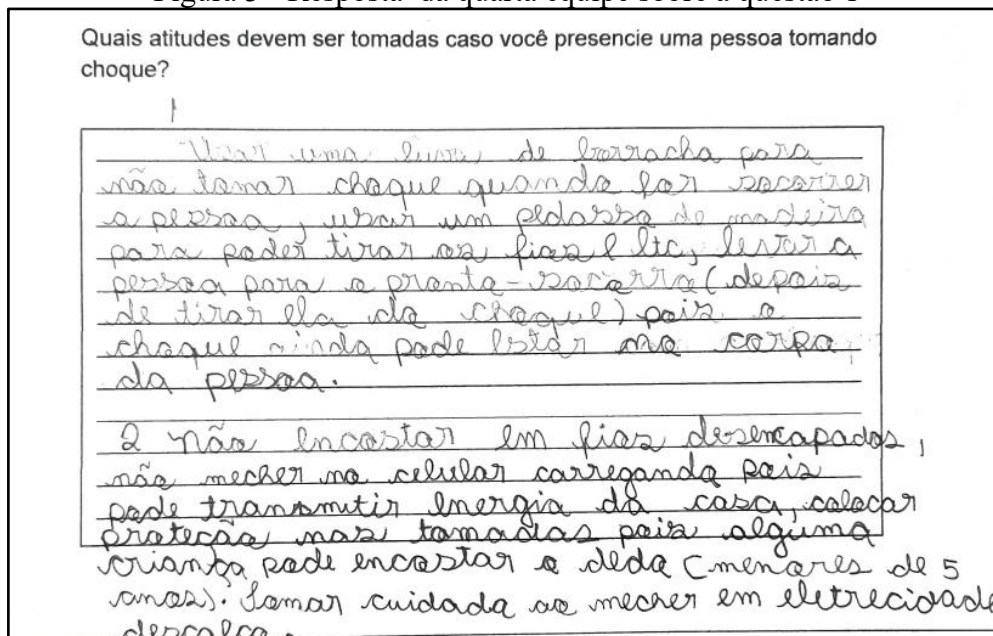 Figura 3 - Resposta da quarta equipe sobre a questão 1
Quais atitudes devem ser tomadas caso você presencie uma pessoa tomando
choque?
1
Usar uma luva, de borracha para
não tomar choque quando for socorrer
a pessoa, usar um pedasso de madeira
para poder tirar os fios e etc, levar a
pessoa para o pronto-socorro (depois
de tirar ela do choque) pois o
choque ainda pode estar no corpo
da pessoa.
2 não encostar em fios desencapados,
não mecher no celular carregando pois
pode transmitir energia da casa, colocar
proteção nas tomadas pois alguma
criança pode encostar o dedo (menores de 5
anos). Tomar cuidado ao mecher em eletrecidade
descalço.